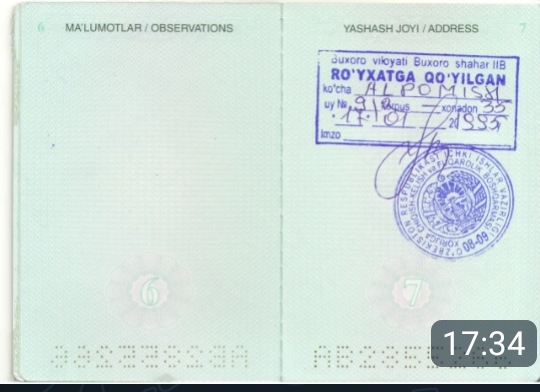 6 MA'LUMOTLAR / OBSERVATIONS
YASHASH JOYI / ADDRESS 7
Buxoro viloyati Buxoro shahar IIB
RO'YXATGA QO'YILGAN
ko'cha ALPOMISH
uy № 9/2 korpus — xonadon 33
17. 01 1995
Imzo
O'ZBEKISTON RESPUBLIKASI ICHKI ISHLAR VAZIRLIGI
08-09
6
7
17:34